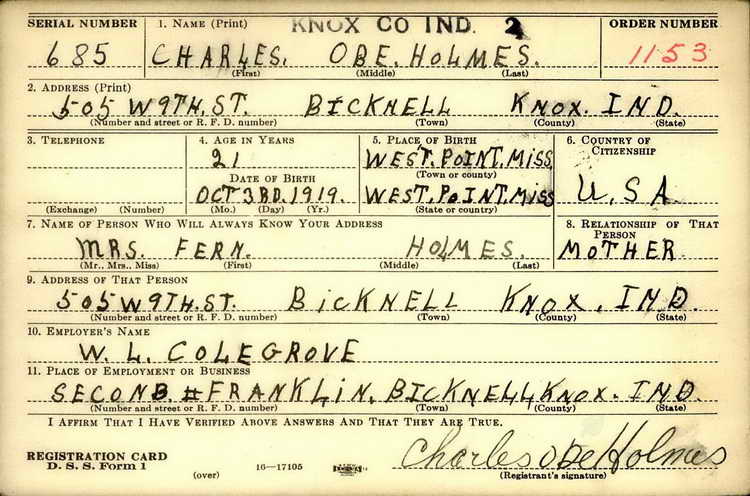 KNOX CO IND. 2
SERIAL NUMBER 1. NAME (Print) ORDER NUMBER
685 CHARLES. OBE. HOLMES. 1153
(First) (Middle) (Last)
2. ADDRESS (Print)
505 W 9TH. ST. BICKNELL KNOX. IND.
(Number and street or R. F. D. number) (Town) (County) (State)
3. TELEPHONE 4. AGE IN YEARS 5. PLACE OF BIRTH 6. COUNTRY OF CITIZENSHIP
21 WEST. POINT. MISS
(Town or county)
DATE OF BIRTH
OCT 3RD. 1919. WEST. POINT. MISS U. S A
(Exchange) (Number) (Mo.) (Day) (Yr.) (State or country)
7. NAME OF PERSON WHO WILL ALWAYS KNOW YOUR ADDRESS 8. RELATIONSHIP OF THAT PERSON
MRS. FERN. HOLMES. MOTHER
(Mr., Mrs., Miss) (First) (Middle) (Last)
9. ADDRESS OF THAT PERSON
505 W 9TH. ST. BICKNELL KNOX. IND.
(Number and street or R. F. D. number) (Town) (County) (State)
10. EMPLOYER'S NAME
W. L. COLEGROVE
11. PLACE OF EMPLOYMENT OR BUSINESS
SECOND. # FRANKLIN. BICKNELL KNOX. IND.
(Number and street or R. F. D. number) (Town) (County) (State)
I AFFIRM THAT I HAVE VERIFIED ABOVE ANSWERS AND THAT THEY ARE TRUE.
REGISTRATION CARD
D. S. S. Form 1 (over) 16—17105 Charles Obe Holmes
(Registrant's signature)